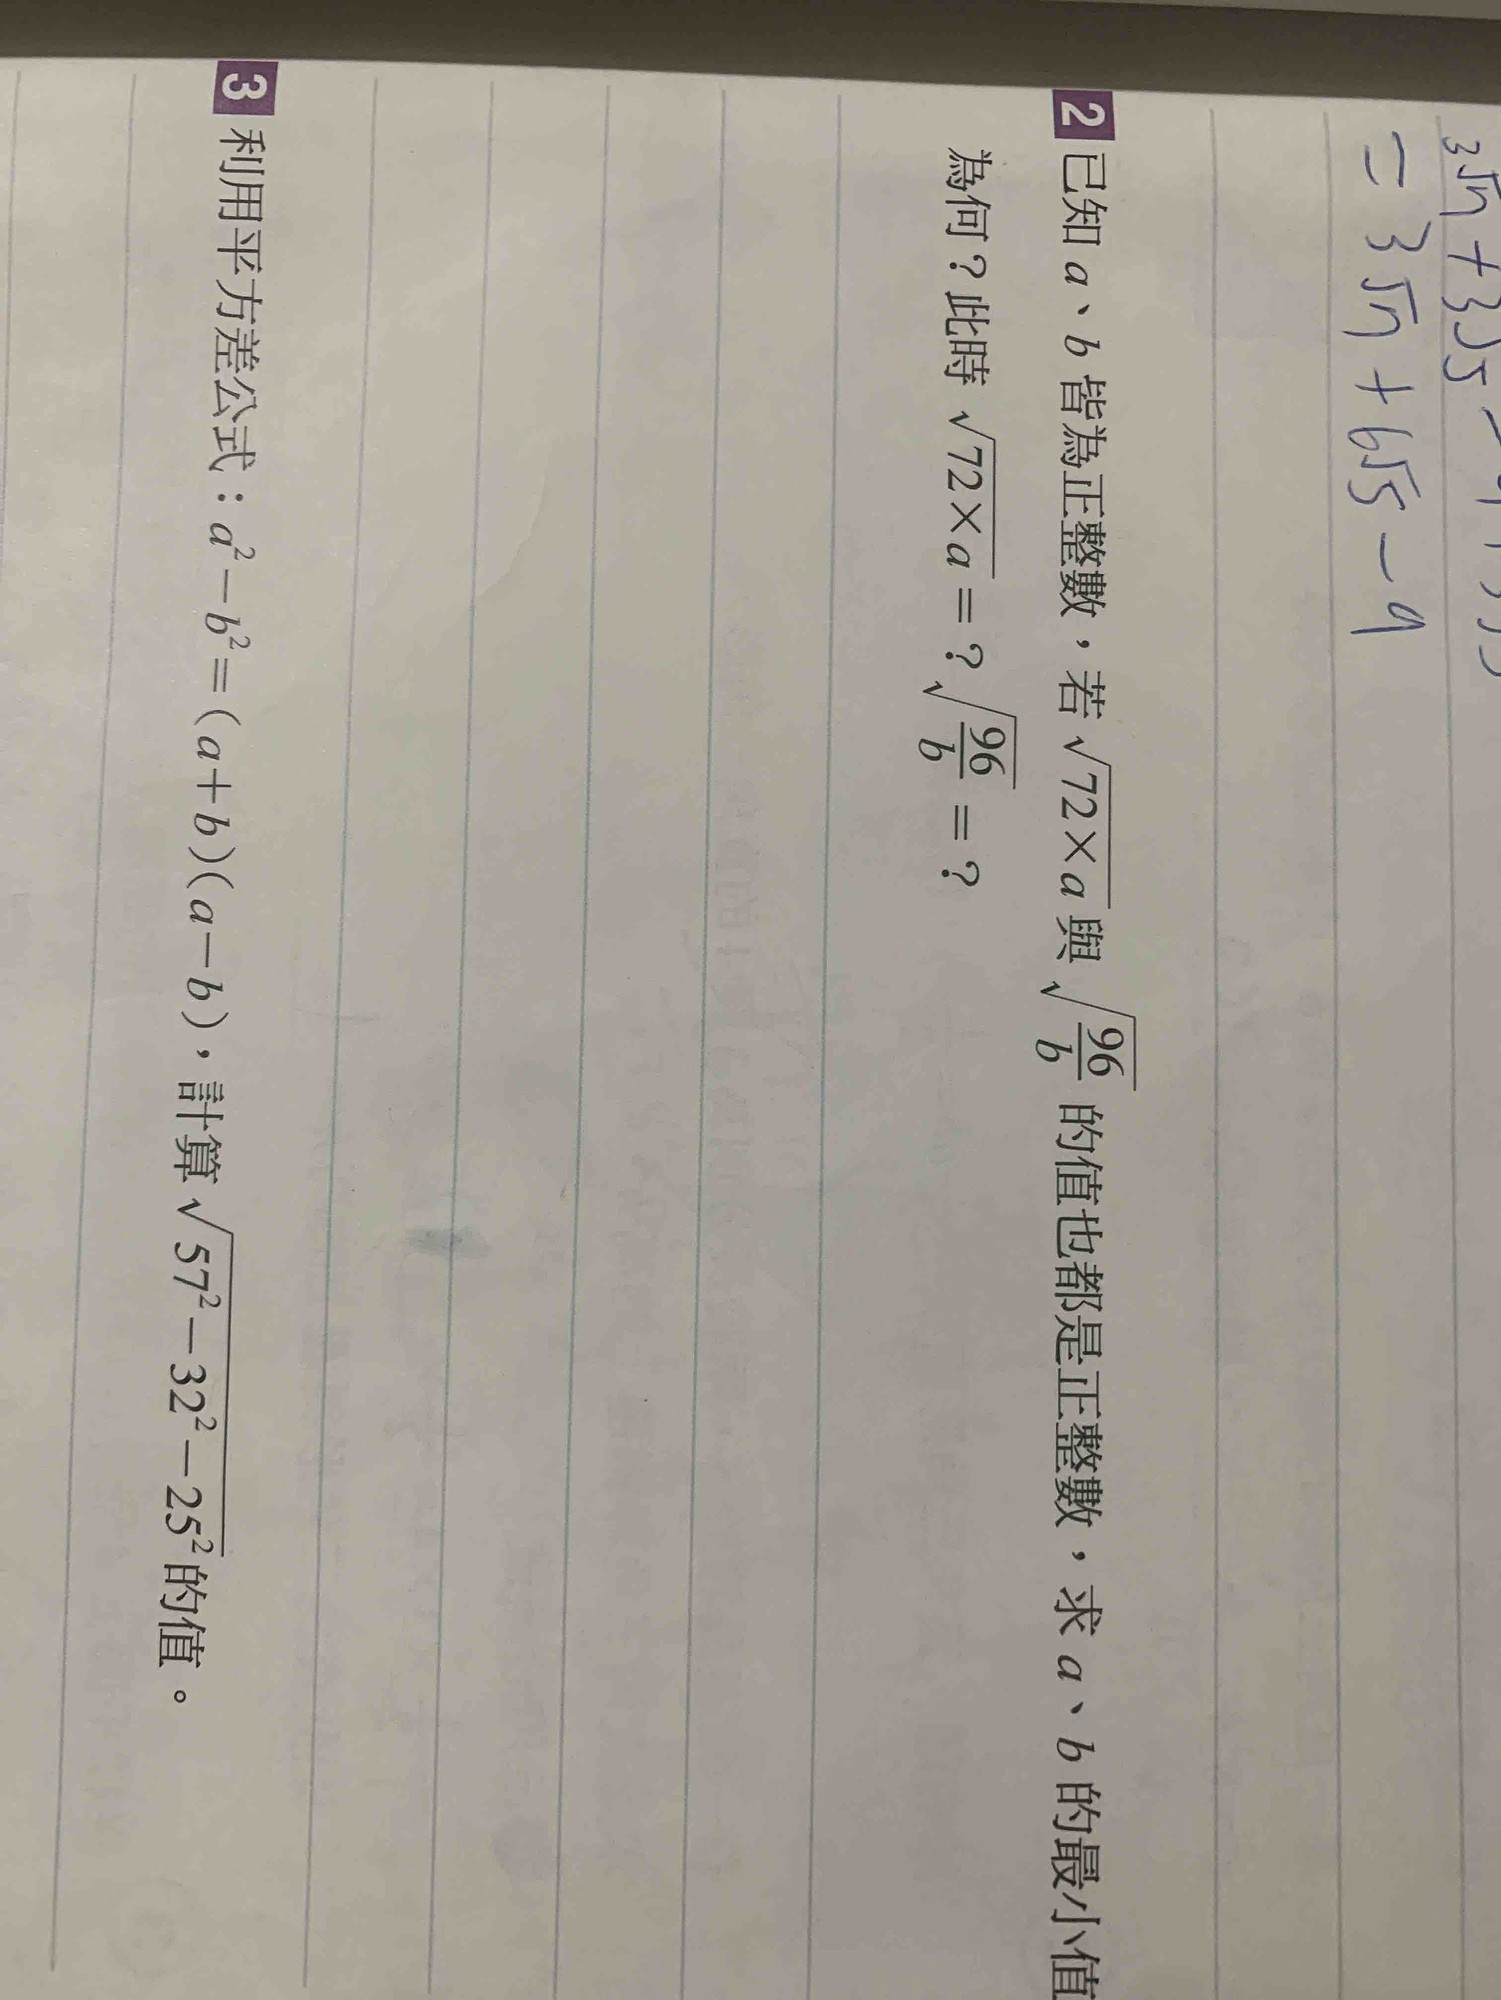 3√n + 3√5
= 3√n + 6√5 - 9
2 已知 a、b 皆為正整數，若 √(72×a) 與 √(96/b) 的值也都是正整數，求 a、b 的最小值
為何？此時 √(72×a) = ? √(96/b) = ?
3 利用平方差公式：a²－b²＝(a＋b)(a－b)，計算 √(57²－32²－25²) 的值。